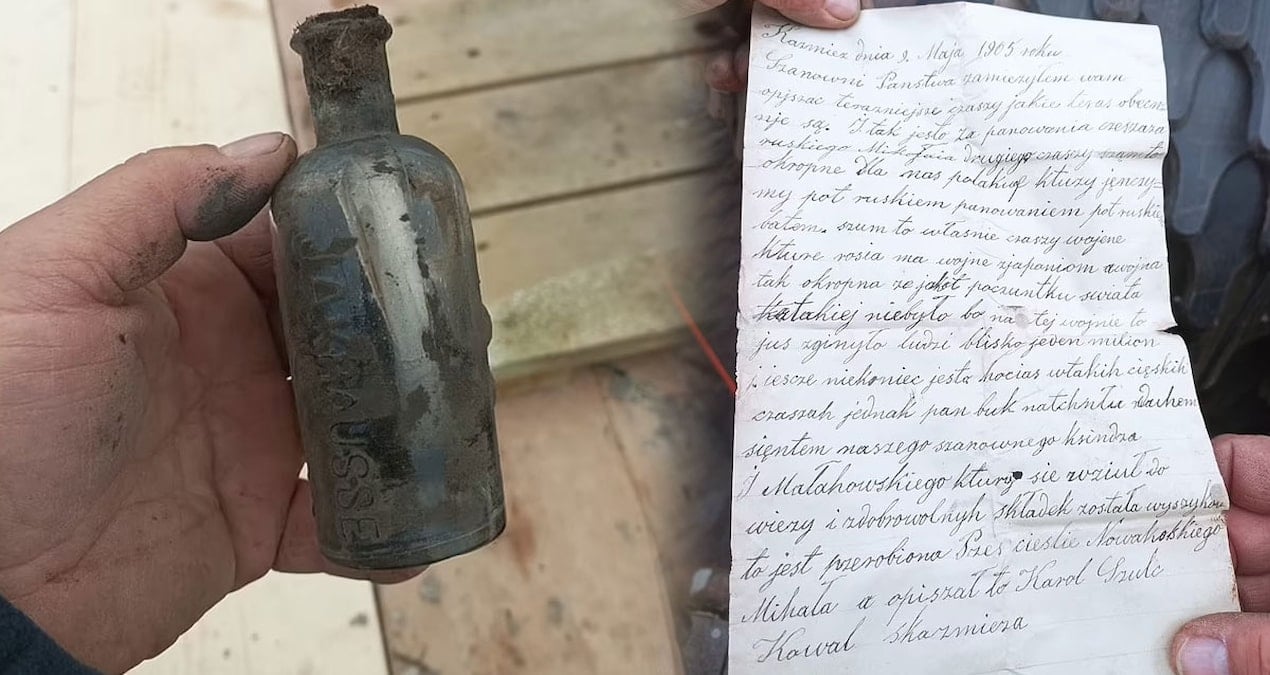 Kazmiez dnia 9. Maja 1905 roku
Szanowni Państwa zamiezylem wam
opjszac terazniejsze czaszy jakie teras obecz
nje są. I tak jesto za panowania czeszaza
ruskiego Mikołaia drugiego czaszy szamło
okropne Dla nas polakuf ktuzy jęnczy=
my pot ruskiem panowaniem pot ruskie
batem. szum to własnie czaszy wojene
kture rosia ma wojne zjaponiom a wojna
tak okropna ze jakot poczuntku swiata
takiej niebyło bo na tej wojnie to
jus zginyło ludzi blisko jeden milion
jiescze niekoniec jesta hocias wtakih cięskih
czaszah jednak pan buk natchnłu duchem
sięntem naszego szanownego ksindza
J Małahowskiego ktury sie wziuł do
wiezy i zdobrowolnyh składek została wyszyko
to jest pzerobiona Pszes cieslie Nowakoskiego
Mihała a opiszał to Karol Szulc
Kowal skazmieza
USSE